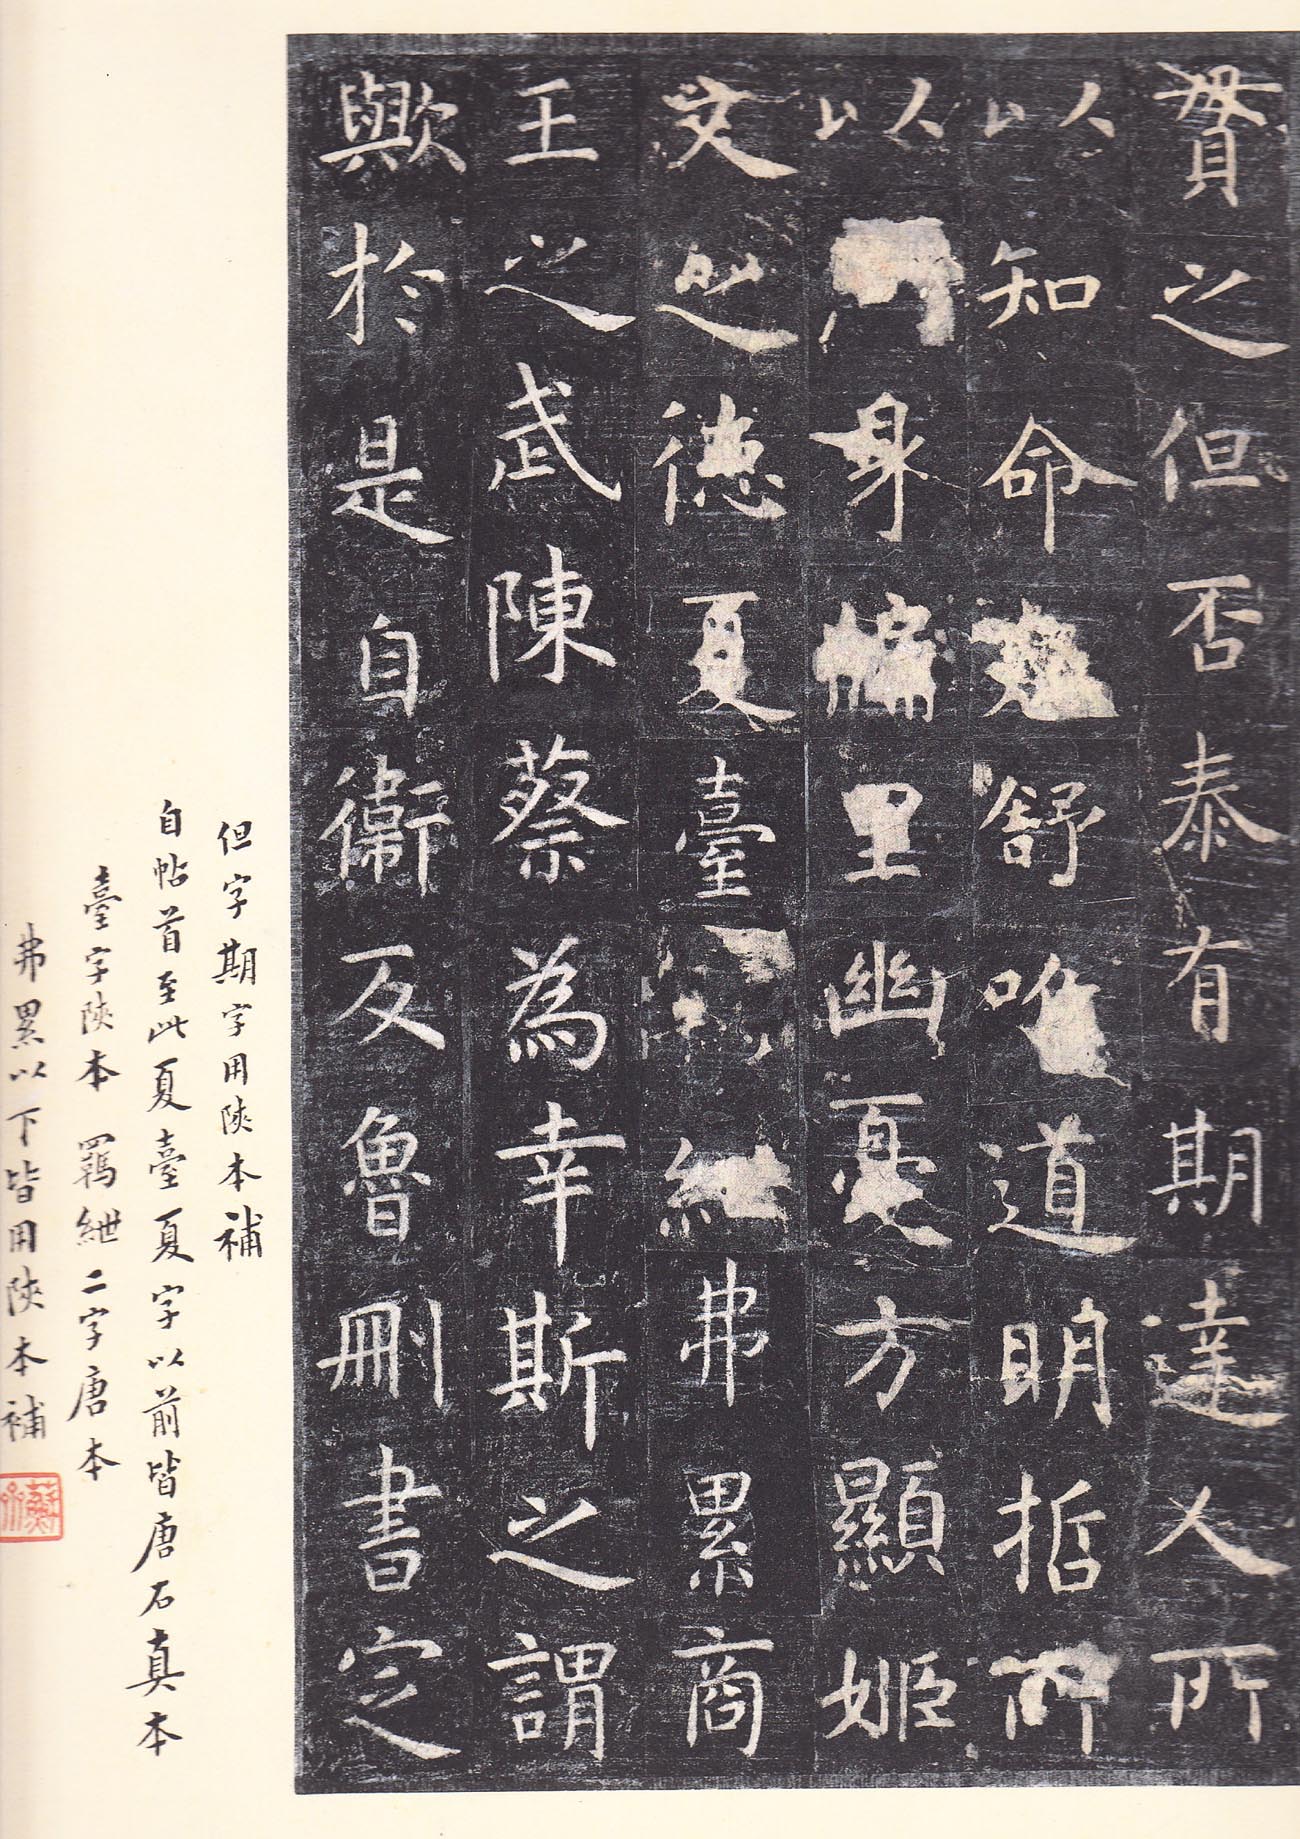 賢之但否泰有期達人所
以知命卷舒唯道明哲所
以 身牖里幽憂方顯姬
文之德夏臺 紲弗累商
王之武陳蔡為幸斯之謂
歟於是自衛反魯刪書定
但字期字用陝本補
自帖首至此夏臺夏字以前皆唐石真本
臺字陝本 羈紲二字唐本
弗累以下皆用陝本補